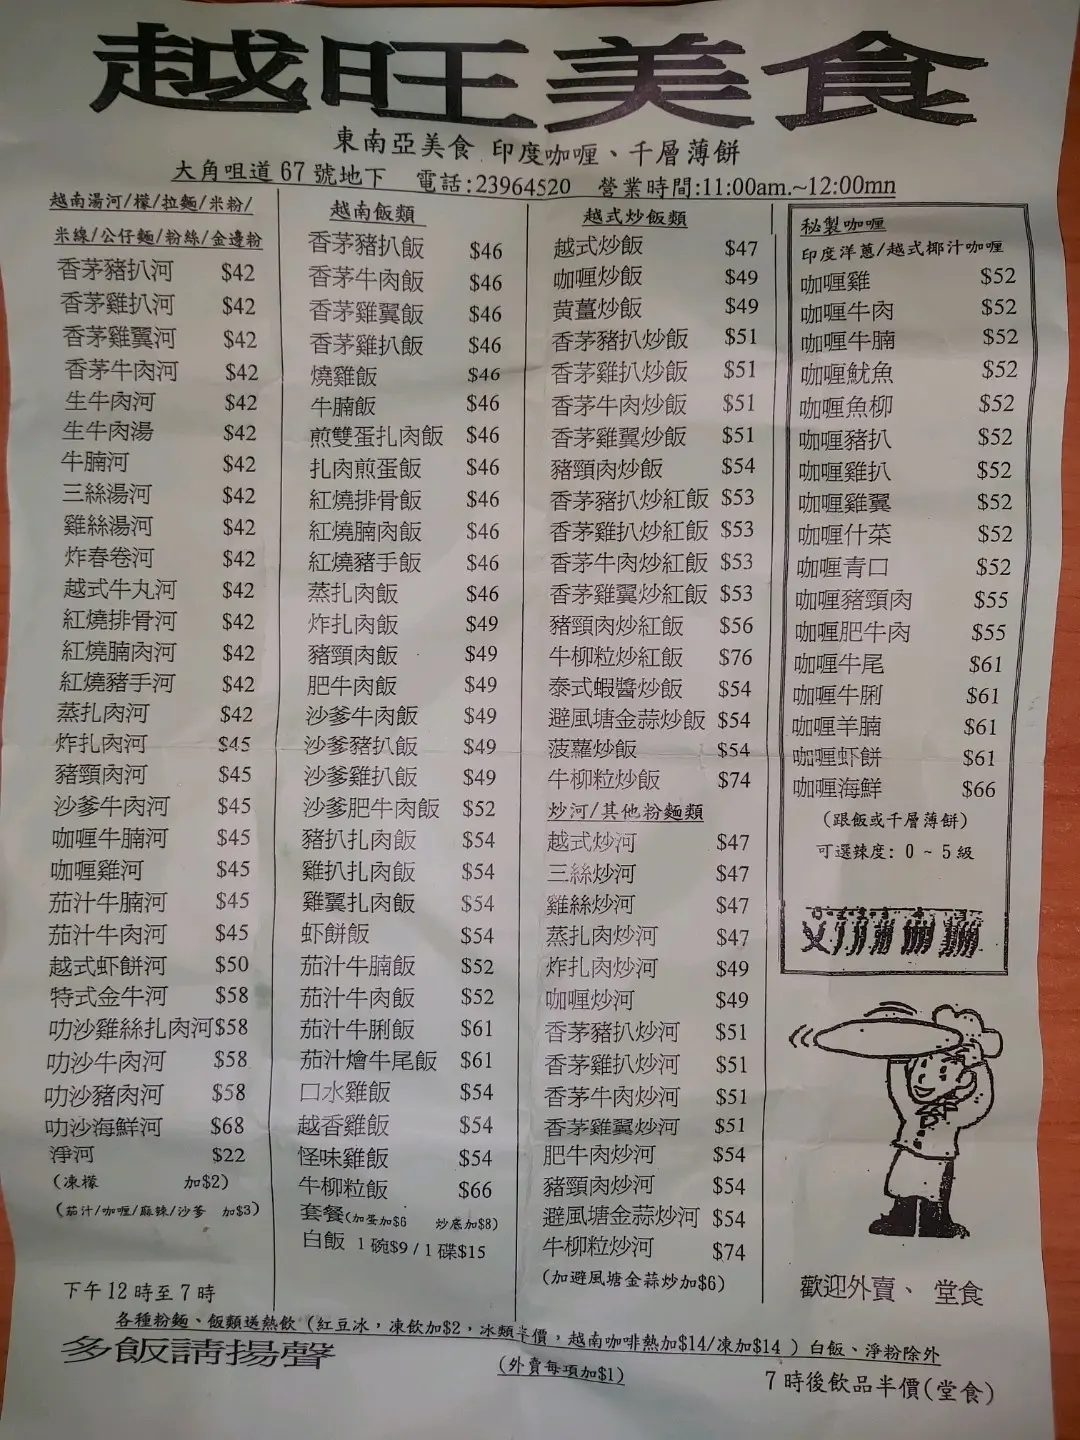 越旺美食
東南亞美食 印度咖喱、千層薄餅
大角咀道 67 號地下 電話:23964520 營業時間:11:00am.~12:00mn
越南湯河/檬/拉麵/米粉/
米線/公仔麵/粉絲/金邊粉
香茅豬扒河 $42
香茅雞扒河 $42
香茅雞翼河 $42
香茅牛肉河 $42
生牛肉河 $42
生牛肉湯 $42
牛腩河 $42
三絲湯河 $42
雞絲湯河 $42
炸春卷河 $42
越式牛丸河 $42
紅燒排骨河 $42
紅燒腩肉河 $42
紅燒豬手河 $42
蒸扎肉河 $42
炸扎肉河 $45
豬頸肉河 $45
沙爹牛肉河 $45
咖喱牛腩河 $45
咖喱雞河 $45
茄汁牛腩河 $45
茄汁牛肉河 $45
越式虾餅河 $50
特式金牛河 $58
叻沙雞絲扎肉河$58
叻沙牛肉河 $58
叻沙豬肉河 $58
叻沙海鮮河 $68
淨河 $22
(凍檬 加$2)
(茄汁/咖喱/麻辣/沙爹 加$3)
越南飯類
香茅豬扒飯 $46
香茅牛肉飯 $46
香茅雞翼飯 $46
香茅雞扒飯 $46
燒雞飯 $46
牛腩飯 $46
煎雙蛋扎肉飯 $46
扎肉煎蛋飯 $46
紅燒排骨飯 $46
紅燒腩肉飯 $46
紅燒豬手飯 $46
蒸扎肉飯 $46
炸扎肉飯 $49
豬頸肉飯 $49
肥牛肉飯 $49
沙爹牛肉飯 $49
沙爹豬扒飯 $49
沙爹雞扒飯 $49
沙爹肥牛肉飯 $52
豬扒扎肉飯 $54
雞扒扎肉飯 $54
雞翼扎肉飯 $54
虾餅飯 $54
茄汁牛腩飯 $52
茄汁牛肉飯 $52
茄汁牛脷飯 $61
茄汁燴牛尾飯 $61
口水雞飯 $54
越香雞飯 $54
怪味雞飯 $54
牛柳粒飯 $66
套餐(加蛋加$6 炒底加$8)
白飯 1 碗$9 / 1 碟$15
越式炒飯類
越式炒飯 $47
咖喱炒飯 $49
黄薑炒飯 $49
香茅豬扒炒飯 $51
香茅雞扒炒飯 $51
香茅牛肉炒飯 $51
香茅雞翼炒飯 $51
豬頸肉炒飯 $54
香茅豬扒炒紅飯 $53
香茅雞扒炒紅飯 $53
香茅牛肉炒紅飯 $53
香茅雞翼炒紅飯 $53
豬頸肉炒紅飯 $56
牛柳粒炒紅飯 $76
泰式蝦醬炒飯 $54
避風塘金蒜炒飯 $54
菠蘿炒飯 $54
牛柳粒炒飯 $74
炒河/其他粉麵類
越式炒河 $47
三絲炒河 $47
雞絲炒河 $47
蒸扎肉炒河 $47
炸扎肉炒河 $49
咖喱炒河 $49
香茅豬扒炒河 $51
香茅雞扒炒河 $51
香茅牛肉炒河 $51
香茅雞翼炒河 $51
肥牛肉炒河 $54
豬頸肉炒河 $54
避風塘金蒜炒河 $54
牛柳粒炒河 $74
(加避風塘金蒜炒加$6)
秘製咖喱
印度洋蔥/越式椰汁咖喱
咖喱雞 $52
咖喱牛肉 $52
咖喱牛腩 $52
咖喱魷魚 $52
咖喱魚柳 $52
咖喱豬扒 $52
咖喱雞扒 $52
咖喱雞翼 $52
咖喱什菜 $52
咖喱青口 $52
咖喱豬頸肉 $55
咖喱肥牛肉 $55
咖喱牛尾 $61
咖喱牛脷 $61
咖喱羊腩 $61
咖喱虾餅 $61
咖喱海鮮 $66
(跟飯或千層薄餅)
可選辣度: 0 ~ 5 級
歡迎外賣、 堂食
下午 12 時至 7 時
各種粉麵、飯類送熱飲 (紅豆冰，凍飲加$2，冰類半價，越南咖啡熱加$14/凍加$14 ) 白飯、淨粉除外
多飯請揚聲
(外賣每項加$1)
7 時後飲品半價(堂食)